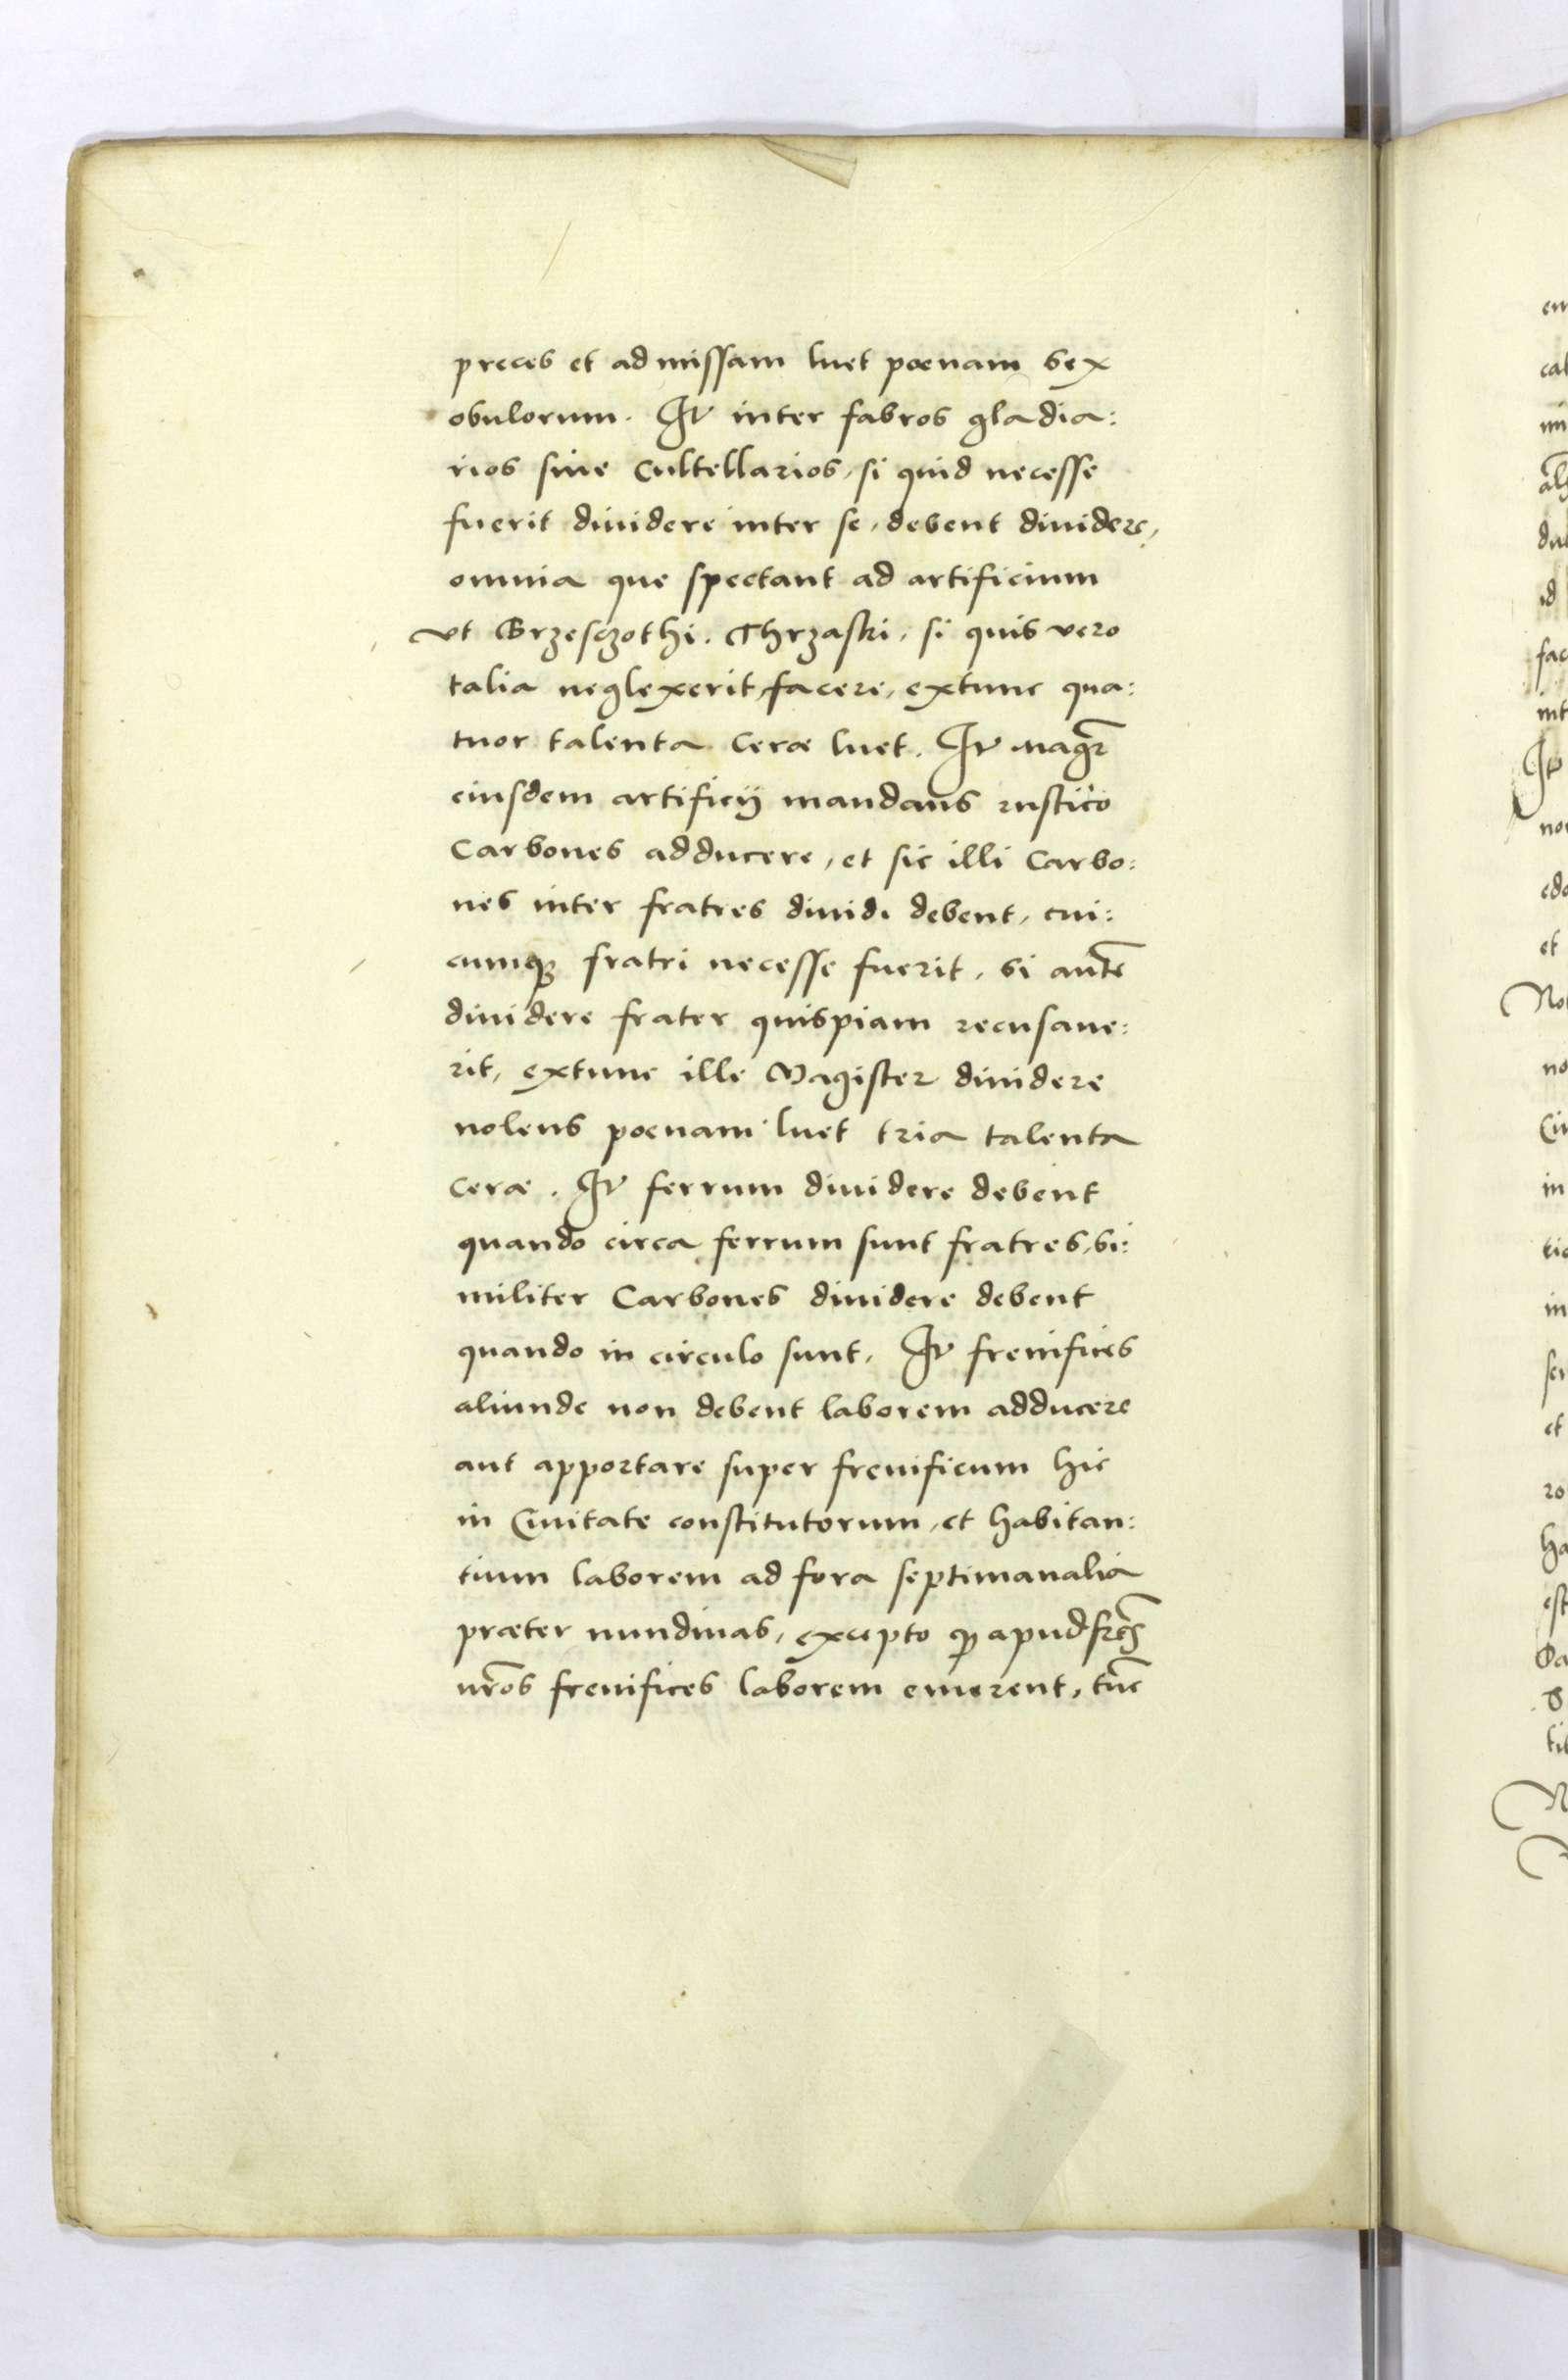 preces et ad missam luet poenam sex
obulorum. It̃ inter fabros gladia:
rios siue Cultellarios, si quid necesse
fuerit diuidere inter se, debent diuidere,
omnia que spectant ad artificium
vt Grzesczothi. Thrzaski, si quis vero
talia neglexerit facere, extunc qua:
tuor talenta Ceræ luet. It̃ magr̃
eiusdem artificij mandans rustico
Carbones adducere, et sic illi Carbo:
nes inter fratres diuidi debent, cui:
cumqꝫ fratri necesse fuerit, si aut̃e
diuidere frater quispiam recusaue:
rit, extunc ille Magister diuidere
nolens poenam luet tria talenta
ceræ. It̃ ferrum diuidere debent
quando circa ferrum sunt fratres, si:
militer Carbones diuidere debent
quando in circulo sunt. It̃ frenifices
aliunde non debent laborem adducere
aut apportare super frenificum hic
in Ciuitate constitutorum, et habitan:
tium laborem ad fora septimanalia
præter nundinas, excepto qꝫ apud fr̃es
nr̃os frenifices laborem emerent, tũc